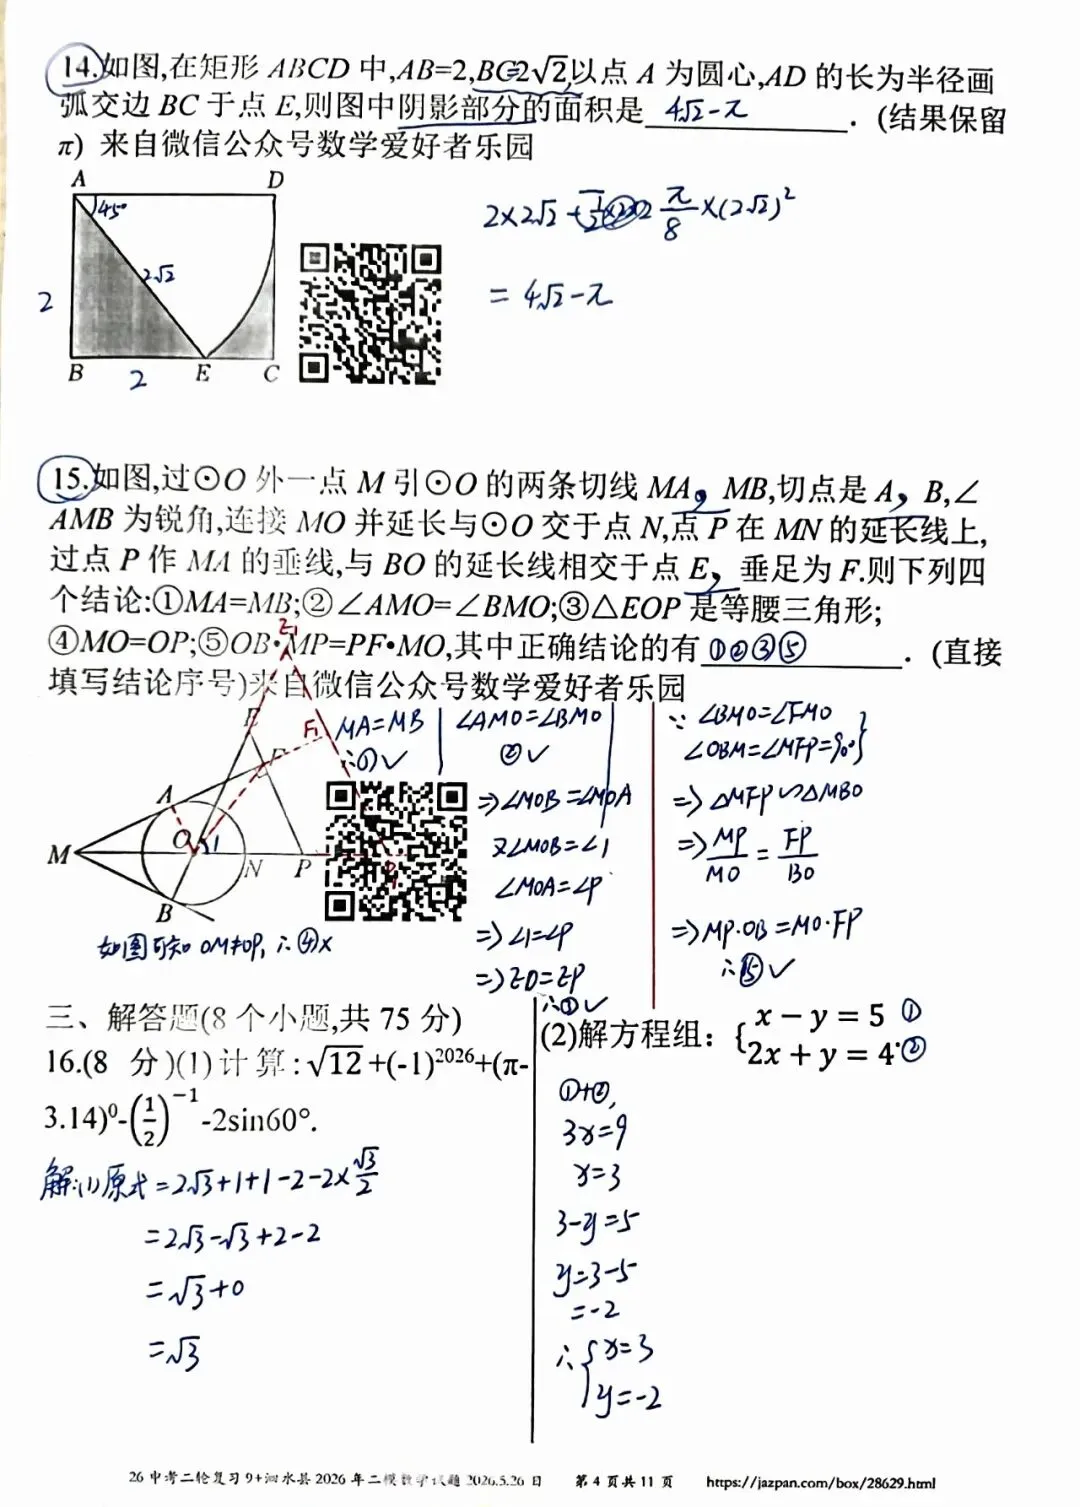 14.如图,在矩形 ABCD 中,AB=2,BC=2√2,以点 A 为圆心,AD 的长为半径画
弧交边 BC 于点 E,则图中阴影部分的面积是 4√2-π . (结果保留
π) 来自微信公众号数学爱好者乐园
A D
45°
2√2
2
B 2 E C
= 4√2-π
15.如图,过⊙O 外一点 M 引⊙O 的两条切线 MA, MB,切点是 A, B,∠
AMB 为锐角,连接 MO 并延长与⊙O 交于点 N,点 P 在 MN 的延长线上,
过点 P 作 MA 的垂线,与 BO 的延长线相交于点 E, 垂足为 F.则下列四
个结论:①MA=MB;②∠AMO=∠BMO;③△EOP 是等腰三角形;
④MO=OP;⑤OB•MP=PF•MO,其中正确结论的有 ①②③⑤ . (直接
填写结论序号)来自微信公众号数学爱好者乐园
E₁
E
F F₁
A
M O 1 N P P₁
B
如图可知 OM≠OP₁ ∴④×
MA=MB
∴①✓
∠AMO=∠BMO
②✓
⇒∠MOB=∠MOA
又∠MOB=∠1
∠MOA=∠P
⇒∠1=∠P
⇒EO=EP
∴③✓
∵ ∠BMO=∠FMO
∠OBM=∠MFP=90°}
⇒ △MFP∽△MBO
⇒ MP/MO = FP/BO
⇒MP·OB=MO·FP
∴⑤✓
三、解答题(8 个小题,共 75 分)
16.(8 分)(1)计算:√12+(-1)²⁰²⁶+(π-
3.14)⁰-(1/2)⁻¹-2sin60°.
解:(1)原式=2√3+1+1-2-2×√3/2
=2√3-√3+2-2
=√3+0
=√3
(2)解方程组: {x − y = 5 ①
2x + y = 4. ②
①+②,
3x=9
x=3
3-y=5
y=3-5
=-2
∴{x=3
y=-2
26 中考二轮复习 9+泗水县 2026 年二模数学试题 2026.5.26 日 第 4 页共 11 页 https://jazpan.com/box/28629.html